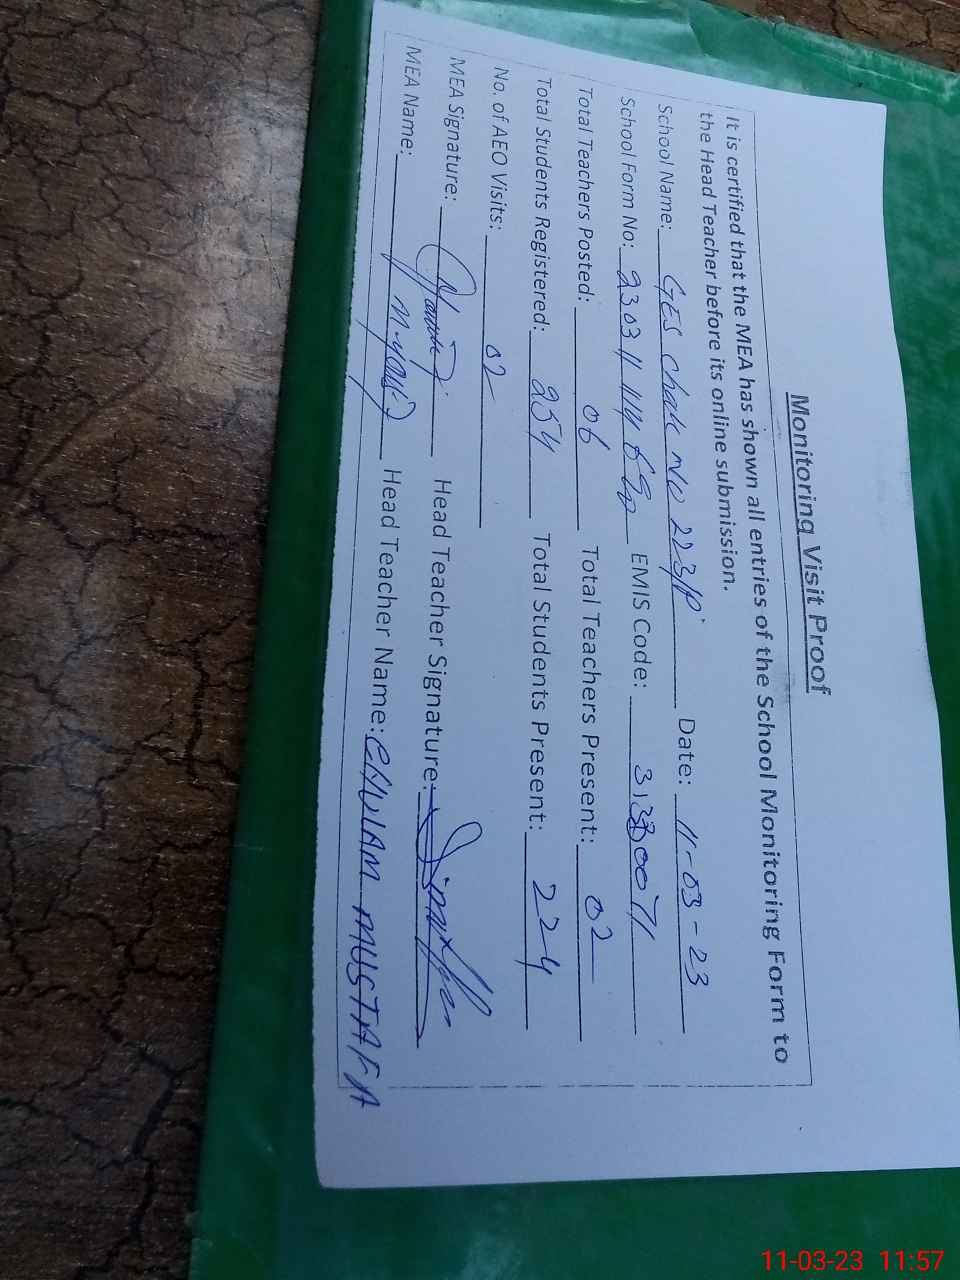 Monitoring Visit Proof
It is certified that the MEA has shown all entries of the School Monitoring Form to
the Head Teacher before its online submission.
School Name: GES Chak NO 223/P Date: 11-03-23
School Form No: 230311114 EMIS Code:
Total Teachers Posted: 06 Total Teachers Present: 02
Total Students Registered: 254 Total Students Present: 224
No. of AEO Visits: 02
MEA Signature: Head Teacher Signature:
MEA Name: Head Teacher Name: GHULAM MUSTAFA
11-03-23 11:57